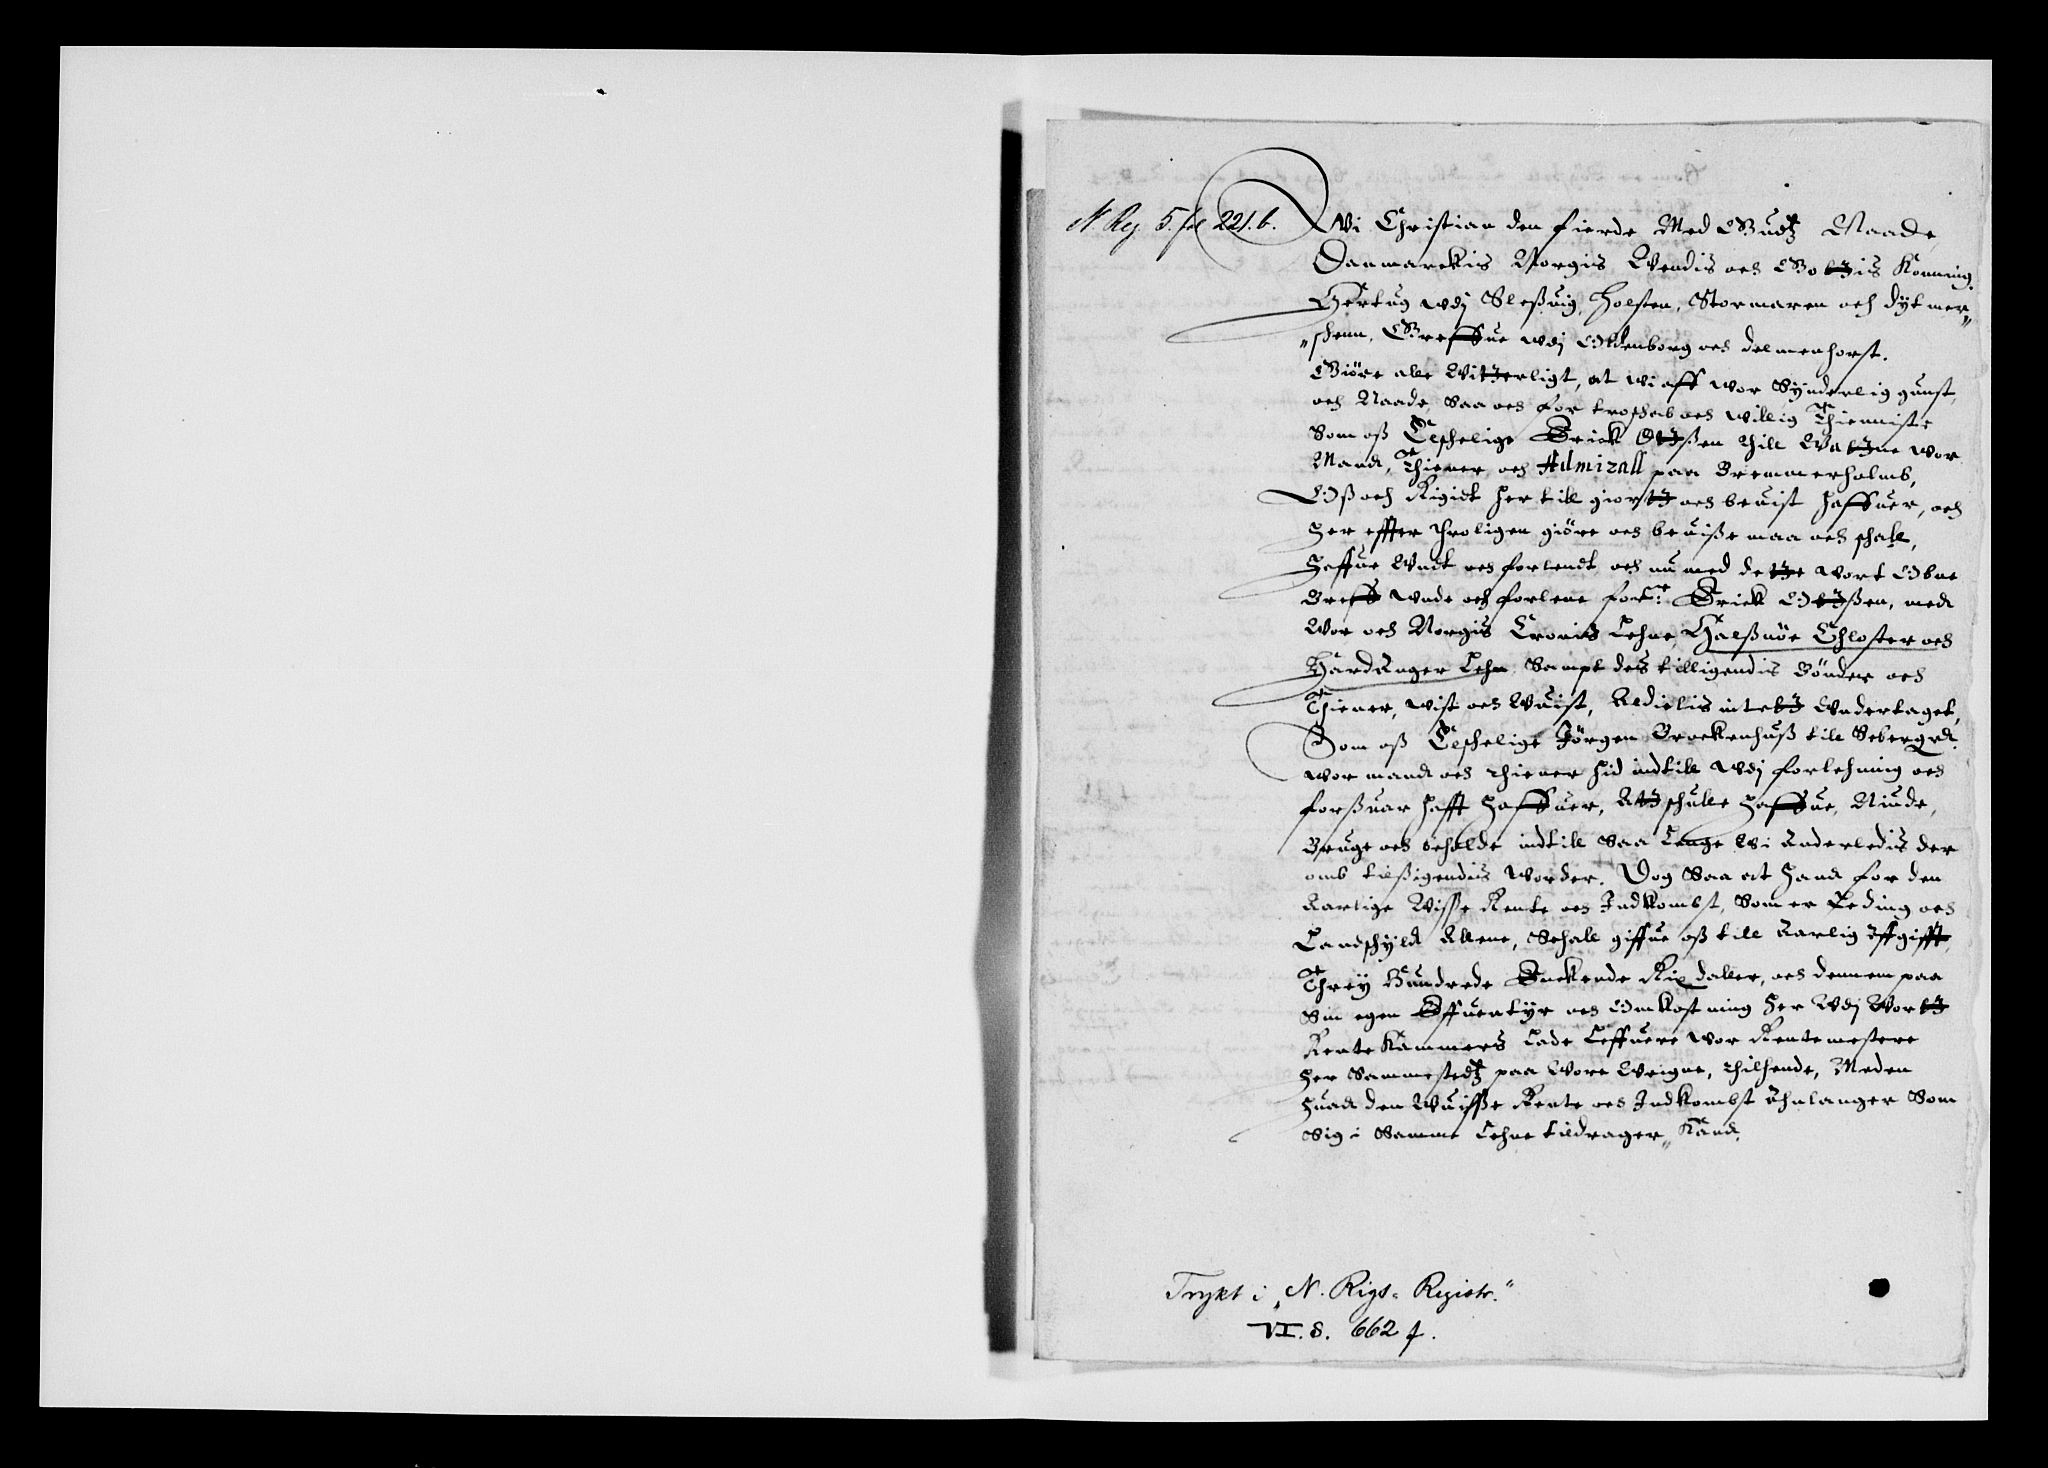 N. Reg. 5. fol 221. b.
Wi Christian den fierde Med Gudtz Naade,
Danmarckis Norgis Wendis och Gottis Konning,
Hertug wdj Sleßuig, Holsten, Stormaren och dÿtmer„
„schenn, Greffue wdj Oldenborg och delmenhorst.
Giöre alle Witterligt, at wi aff wor Sÿnderlig gunst,
och Naade, Saa och for troschab och willig Thienniste
Som oß Elschelige Erick Ottßen thill Wattne wor
Mand, Thiener och Admirall paa Bremmerholmb,
Oß och Rigidt her till giortt och beuist haffuer, och
her effter throligen giöre och beuiße maa och schall,
Haffue Undt och forlendt och nu med dette wort Obne
Breff wnde och forlene for:ne Erick Ottßen, med
Wor och Norgis Cronis Lehne, Halßnöe Closter och
Hardanger Lehn Sampt des tilligendis Bönder och
Thiener, wist och Wuist, Aldielis intett Undertaget,
Som oß Elschelige Jörgen Brockenhuß till Sebergrd.
wor mand och thiener hid indtill wdj forlehning och
forßuar hafft haffuer, Att schulle haffue, Niude,
Bruge och beholde indtill Saa Lenge Wi Anderledis der
omb tilßigendis worder. Dog Saa at hand for den
Aarlige Wisse Rente och Indkombst, Som er Leding och
Landschÿld Allene, Schall giffue oß till Aarlig affgifft,
Threÿ Hundrede Enckende Rix daller, och dennem paa
Sin egen Effuentÿr och Omkostning her Wdj Wortt
Rente Kammers Lade Leffuere wor Rentemestere
her Sammestedtz paa Wore Weigne, thilhende, Meden
huad den Wuisse Rente och Indkombst ahnlanger Som
Sig i Samme Lehne tildrager„ Hand,
Trykt i „N. Rigs-Registr.“
VI. S. 662 f.